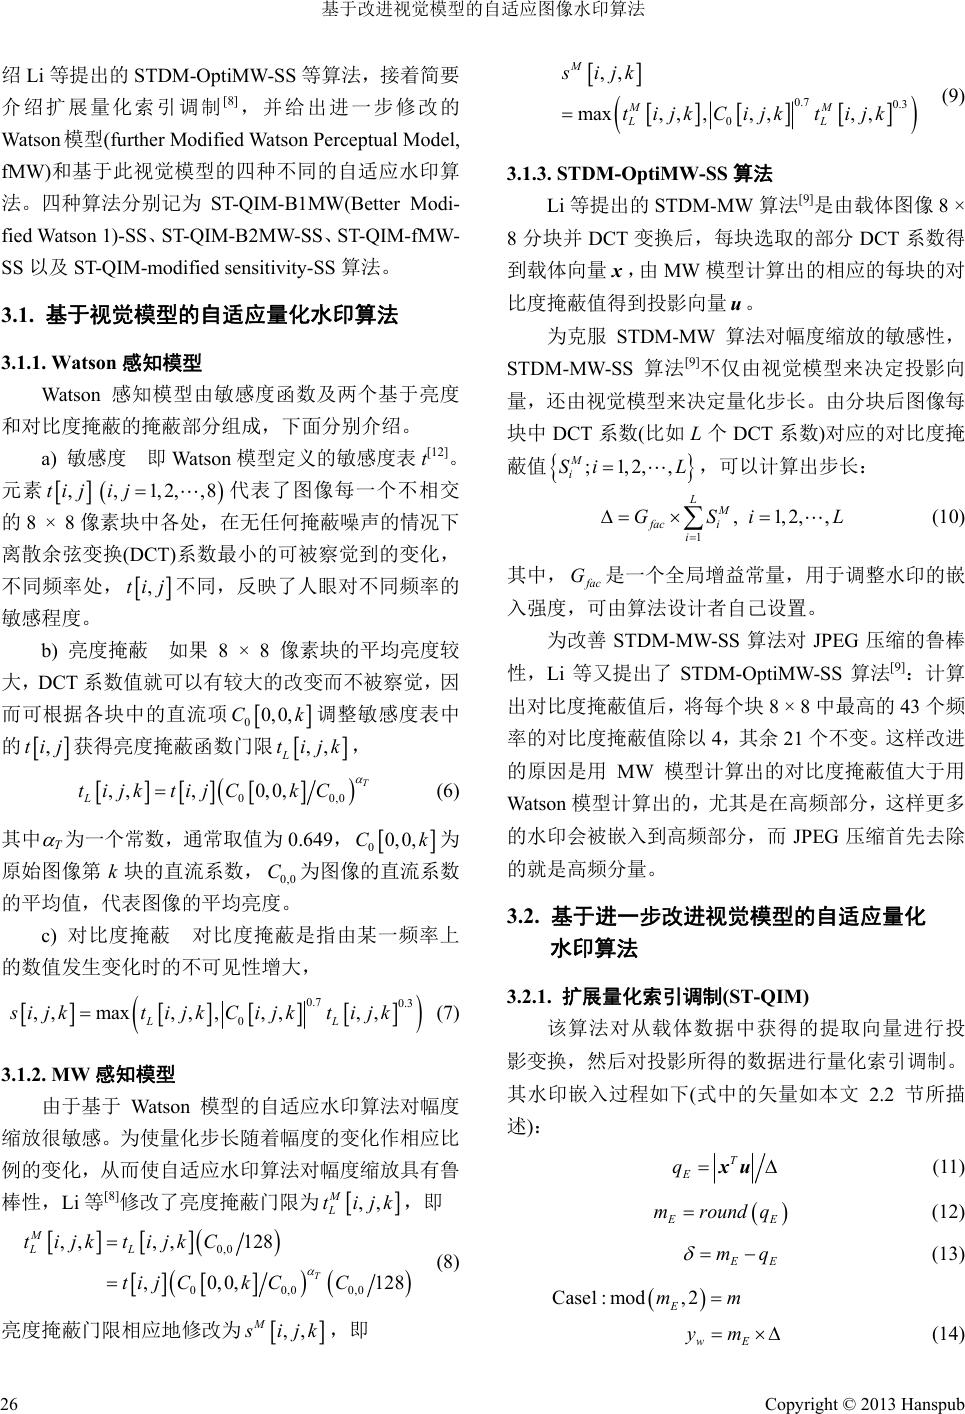 基于改进视觉模型的自适应图像水印算法
绍 Li 等提出的 STDM-OptiMW-SS 等算法，接着简要
介绍扩展量化索引调制[8]，并给出进一步修改的
Watson 模型(further Modified Watson Perceptual Model,
fMW)和基于此视觉模型的四种不同的自适应水印算
法。四种算法分别记为 ST-QIM-B1MW(Better Modi-
fied Watson 1)-SS、ST-QIM-B2MW-SS、ST-QIM-fMW-
SS 以及 ST-QIM-modified sensitivity-SS 算法。
3.1. 基于视觉模型的自适应量化水印算法
3.1.1. Watson 感知模型
Watson 感知模型由敏感度函数及两个基于亮度
和对比度掩蔽的掩蔽部分组成，下面分别介绍。
a) 敏感度 即 Watson 模型定义的敏感度表 t[12]。
元素 t[i,j] (i,j=1,2,⋯,8) 代表了图像每一个不相交
的 8 × 8 像素块中各处，在无任何掩蔽噪声的情况下
离散余弦变换(DCT)系数最小的可被察觉到的变化，
不同频率处，t[i,j] 不同，反映了人眼对不同频率的
敏感程度。
b) 亮度掩蔽 如果 8 × 8 像素块的平均亮度较
大，DCT 系数值就可以有较大的改变而不被察觉，因
而可根据各块中的直流项 C0[0,0,k] 调整敏感度表中
的 t[i,j] 获得亮度掩蔽函数门限 tL[i,j,k]，
tL[i,j,k]=t[i,j](C0[0,0,k]C0,0)^αT (6)
其中αT为一个常数，通常取值为 0.649，C0[0,0,k] 为
原始图像第 k 块的直流系数，C0,0 为图像的直流系数
的平均值，代表图像的平均亮度。
c) 对比度掩蔽 对比度掩蔽是指由某一频率上
的数值发生变化时的不可见性增大，
s[i,j,k]=max(tL[i,j,k],|C0[i,j,k]|^0.7 tL[i,j,k]^0.3) (7)
3.1.2. MW 感知模型
由于基于 Watson 模型的自适应水印算法对幅度
缩放很敏感。为使量化步长随着幅度的变化作相应比
例的变化，从而使自适应水印算法对幅度缩放具有鲁
棒性，Li 等[8]修改了亮度掩蔽门限为 tL^M[i,j,k]，即
tL^M[i,j,k]=tL[i,j,k](C0,0 128)
=t[i,j](C0[0,0,k]C0,0)^αT(C0,0 128) (8)
亮度掩蔽门限相应地修改为 s^M[i,j,k]，即
s^M[i,j,k]
=max(tL^M[i,j,k],|C0[i,j,k]|^0.7 tL^M[i,j,k]^0.3) (9)
3.1.3. STDM-OptiMW-SS 算法
Li 等提出的 STDM-MW 算法[9]是由载体图像 8 ×
8 分块并 DCT 变换后，每块选取的部分 DCT 系数得
到载体向量 x，由 MW 模型计算出的相应的每块的对
比度掩蔽值得到投影向量 u。
为克服 STDM-MW 算法对幅度缩放的敏感性，
STDM-MW-SS 算法[9]不仅由视觉模型来决定投影向
量，还由视觉模型来决定量化步长。由分块后图像每
块中 DCT 系数(比如 L 个 DCT 系数)对应的对比度掩
蔽值 {Si^M;i=1,2,⋯,L}，可以计算出步长：
Δ=Gfac×∑(i=1→L) Si^M, i=1,2,⋯,L (10)
其中，Gfac 是一个全局增益常量，用于调整水印的嵌
入强度，可由算法设计者自己设置。
为改善 STDM-MW-SS 算法对 JPEG 压缩的鲁棒
性，Li 等又提出了 STDM-OptiMW-SS 算法[9]：计算
出对比度掩蔽值后，将每个块 8 × 8 中最高的 43 个频
率的对比度掩蔽值除以 4，其余 21 个不变。这样改进
的原因是用 MW 模型计算出的对比度掩蔽值大于用
Watson 模型计算出的，尤其是在高频部分，这样更多
的水印会被嵌入到高频部分，而 JPEG 压缩首先去除
的就是高频分量。
3.2. 基于进一步改进视觉模型的自适应量化
水印算法
3.2.1. 扩展量化索引调制(ST-QIM)
该算法对从载体数据中获得的提取向量进行投
影变换，然后对投影所得的数据进行量化索引调制。
其水印嵌入过程如下(式中的矢量如本文 2.2 节所描
述)：
qE=|x^T u| Δ (11)
mE=round(qE) (12)
δ=mE−qE (13)
Case1:mod(mE,2)=m
yw=mE×Δ (14)
26
Copyright © 2013 Hanspub